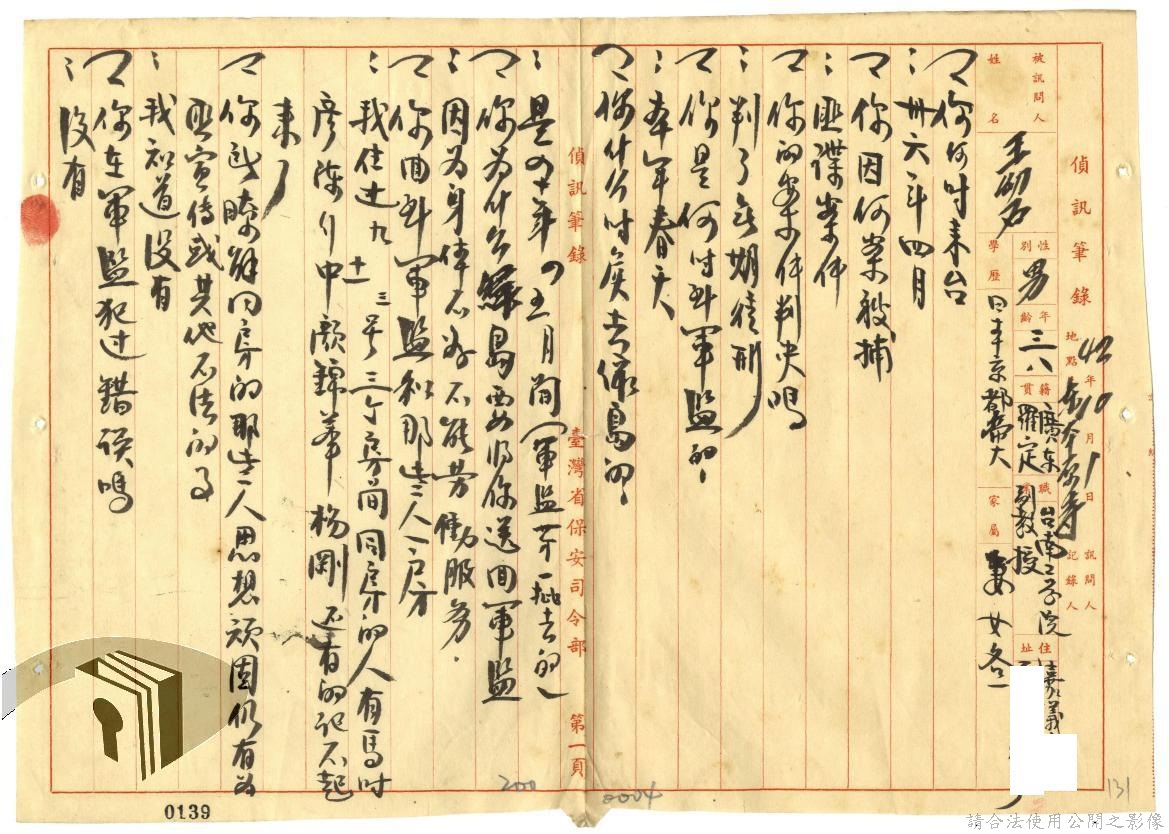 偵訊筆錄
42年10月1日
地點
訊問人
記錄人
被訊問人姓名 王
性別 男
年齡 三八
籍貫 廣東羅定
職業 台南工學院副教授
住址 嘉義
學歷 日本京都帝大
家屬 妻女各一
你何時來台
卅六年四月
你因何案被捕
匪諜案件
你的案件判決嗎
判了無期徒刑
你是何時到軍監的
本年春天
你什么时候去綠島的
是四十年四五月間（軍監第一批去的）
你为什么綠島要將你送回軍監
因为身体不好不能劳動服务
你回到軍監和那些人一房
我住过九十一三号三个房间同房的人有馬时
彥陳行中顏錦华楊剛还有的記不起
来了
你能瞭解同房的那些人思想頑固仍有为
匪宣傳或其他不法的事
我知道没有
你在軍監犯过錯误嗎
没有
偵訊筆錄
臺灣省保安司令部
第一頁
200
0004
131
0139
請合法使用公開之影像